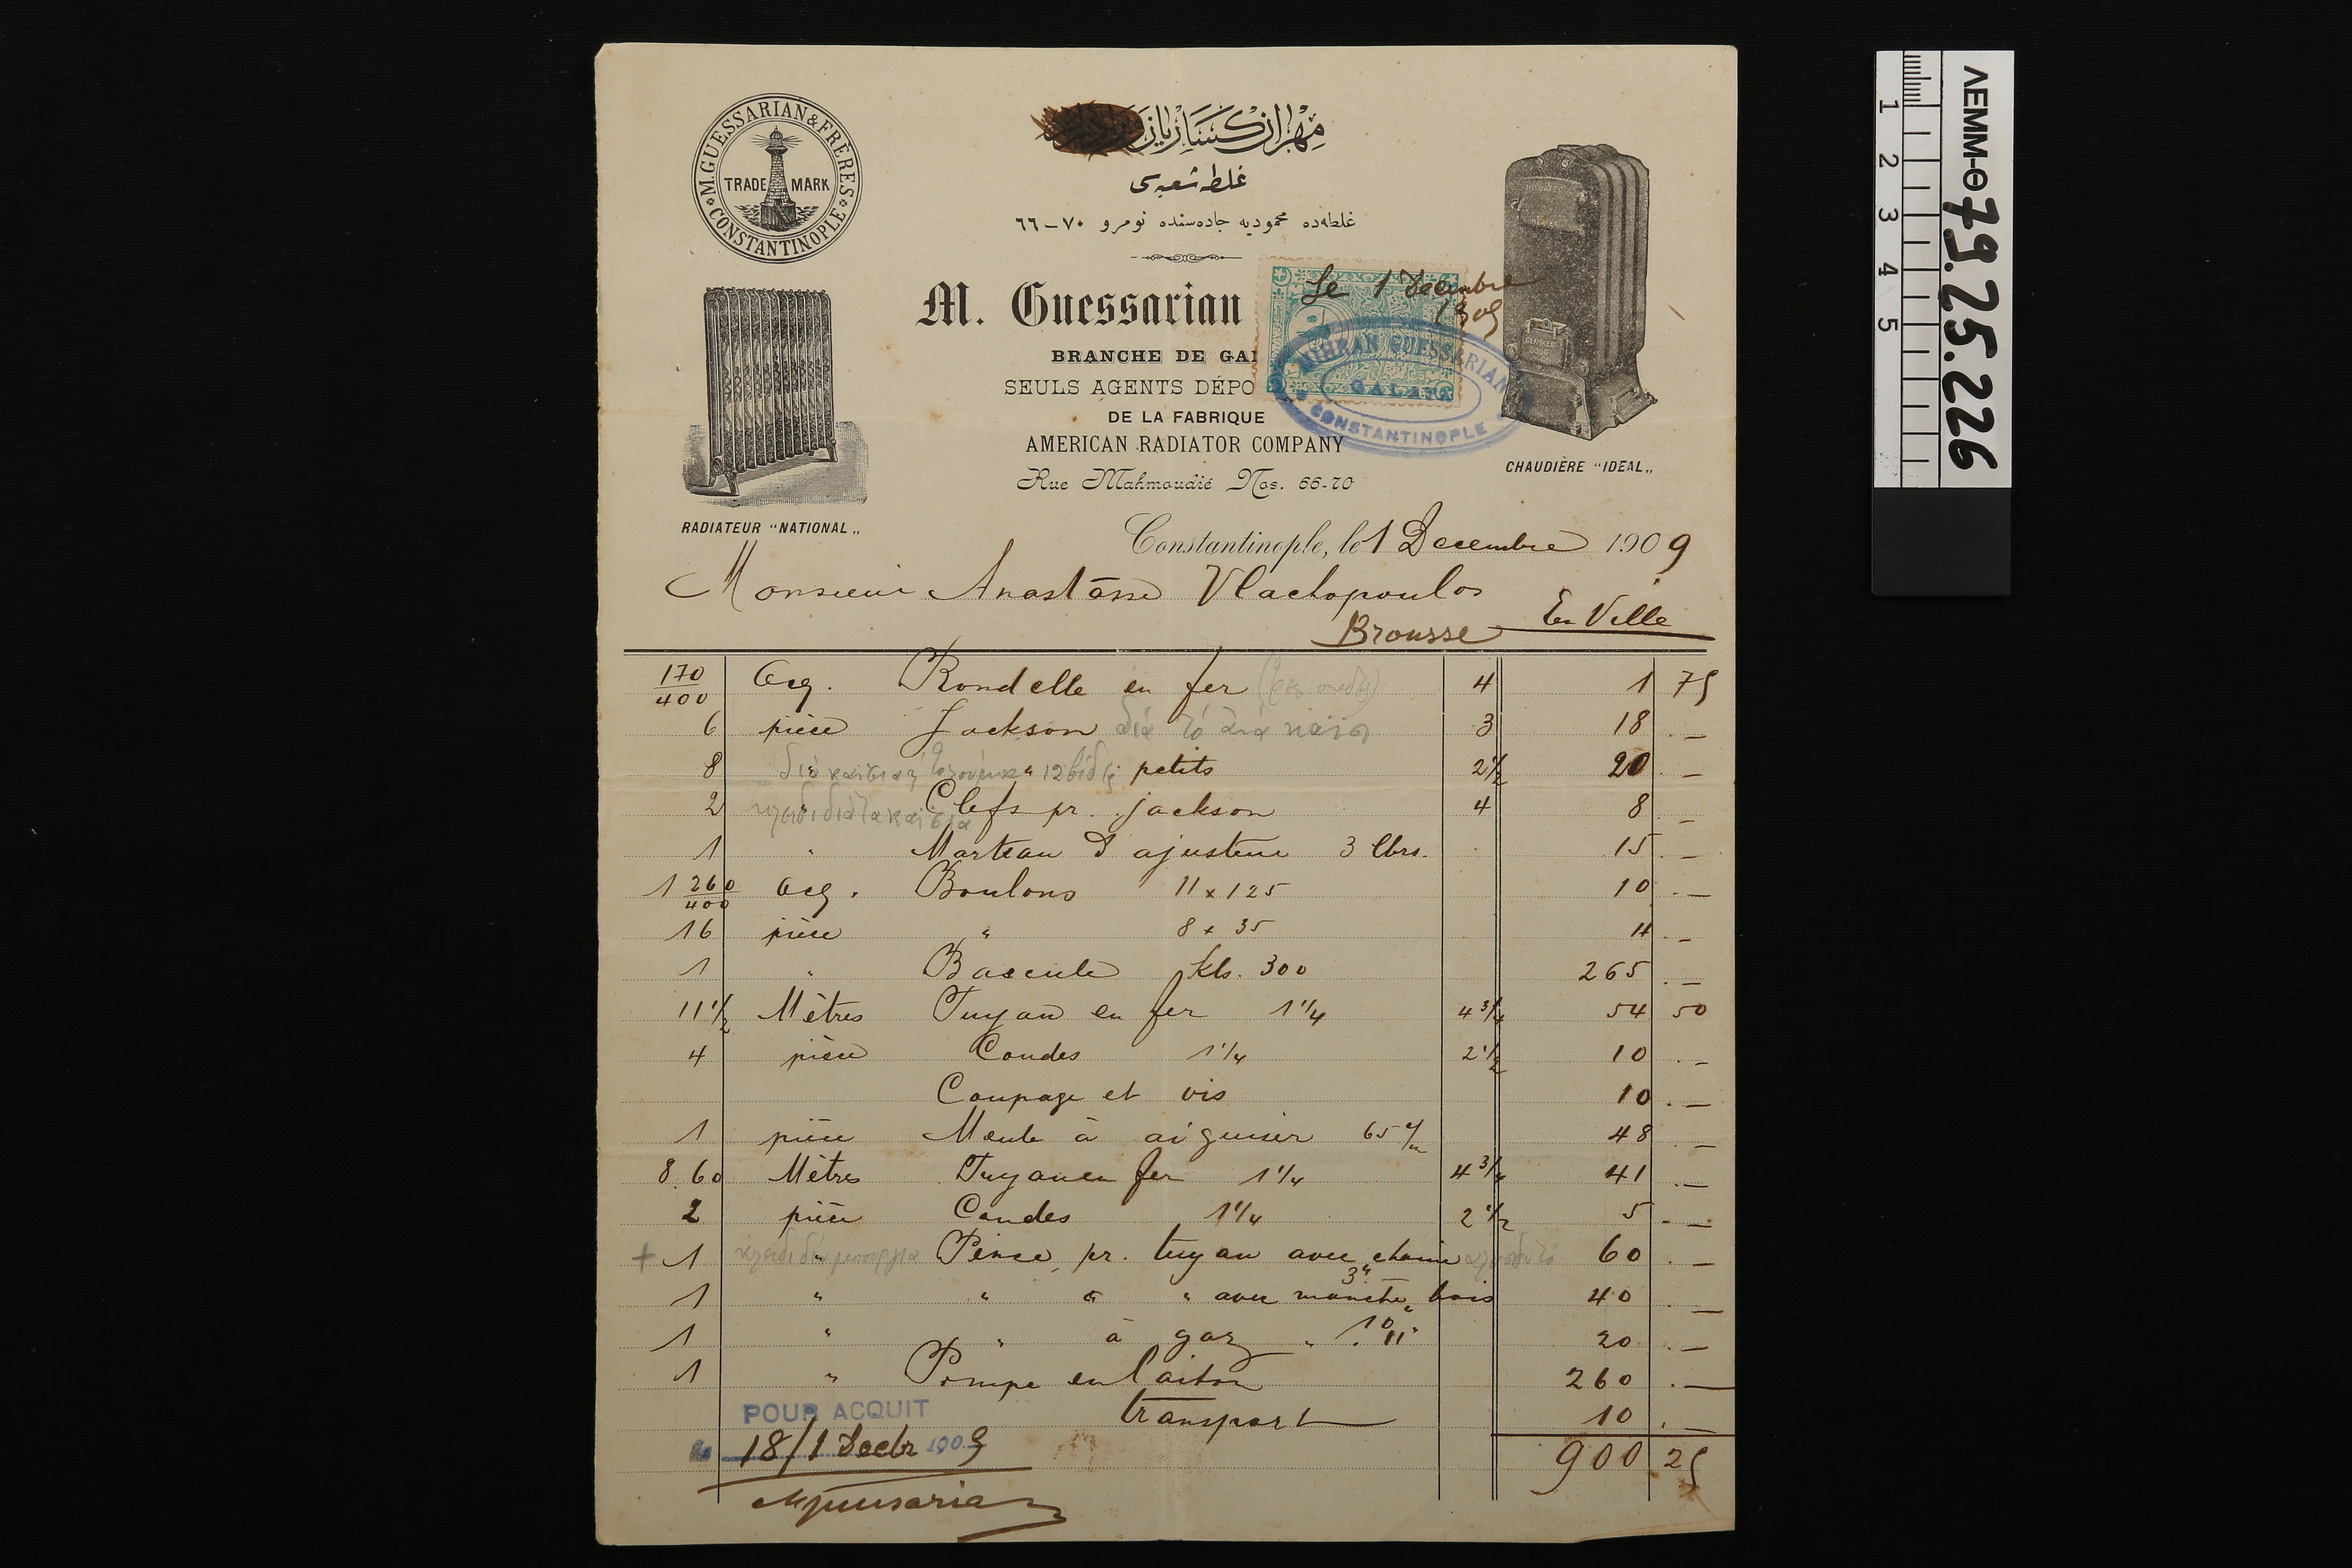 M. GUESSARIAN & FRÈRES
TRADE MARK
CONSTANTINOPLE
مهران كسساريان
غلطه شعبه سی
غلطه ده محموديه جاده سنده نومرو ٧٠-٦٦
M. Guessarian
BRANCHE DE GA
SEULS AGENTS DÉPO
DE LA FABRIQUE
AMERICAN RADIATOR COMPANY
Rue Mahmoudié Nos. 66-70
Le 1 Decembre
1909
MIHRAN GUESSARIAN
GALATA
CONSTANTINOPLE
RADIATEUR "NATIONAL„
CHAUDIÈRE "IDEAL„
Constantinople, le 1 Decembre 1909
Monsieur Anastasse Vlachopoulos
Brousse En Ville
170/400 Ocq. Rondelle en fer 4 1 75
6 pièce Jackson διά τό 3 18 . —
8 " 12 βίδες petits 2 1/2 20 . —
2 κλειδί διά τα " Clefs pr. jackson 4 8 . —
1 " Marteau d'ajusteur 3 lbrs. 15 . —
1 260/400 Ocq. Boulons 11 x 125 10 . —
16 pièce " 8 x 35 4 . —
1 " Bascule kls. 300 265 . —
11 1/2 Mètres Tuyau en fer 1 1/4 4 3/4 54 50
4 pièce Coudes 1 1/4 2 1/2 10 . —
Coupage et vis 10 . —
1 pièce Meule à aiguiser 65 c/m 48 . —
8.60 Mètres Tuyau en fer 1 1/4 4 3/4 41 . —
2 pièce Coudes 1 1/4 2 1/2 5 . —
+ 1 κλειδί διά " Pince pr. tuyau avec chaine 60 . —
3"
1 " " " " avec manche bois 40 . —
1 " " à gaz " 10 . 11" 20 . —
1 " Pompe en laiton 260 . —
transport 10 . —
900 25
POUR ACQUIT
le 18/1 Decbr 1909
MGuessarian
ΛΕΜΜ-Θ 79.25.226
1 2 3 4 5